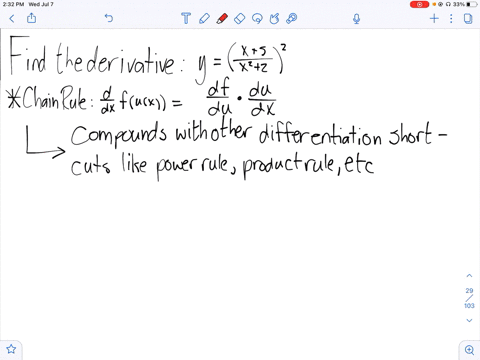 2:32 PM Wed Jul 7
33%
Find the derivative: y = (x+5/x²+2)²
*Chain Rule: d/dx f(u(x)) = df/du · du/dx
Compounds with other differentiation short-
cuts like power rule, product rule, etc
29
/
103